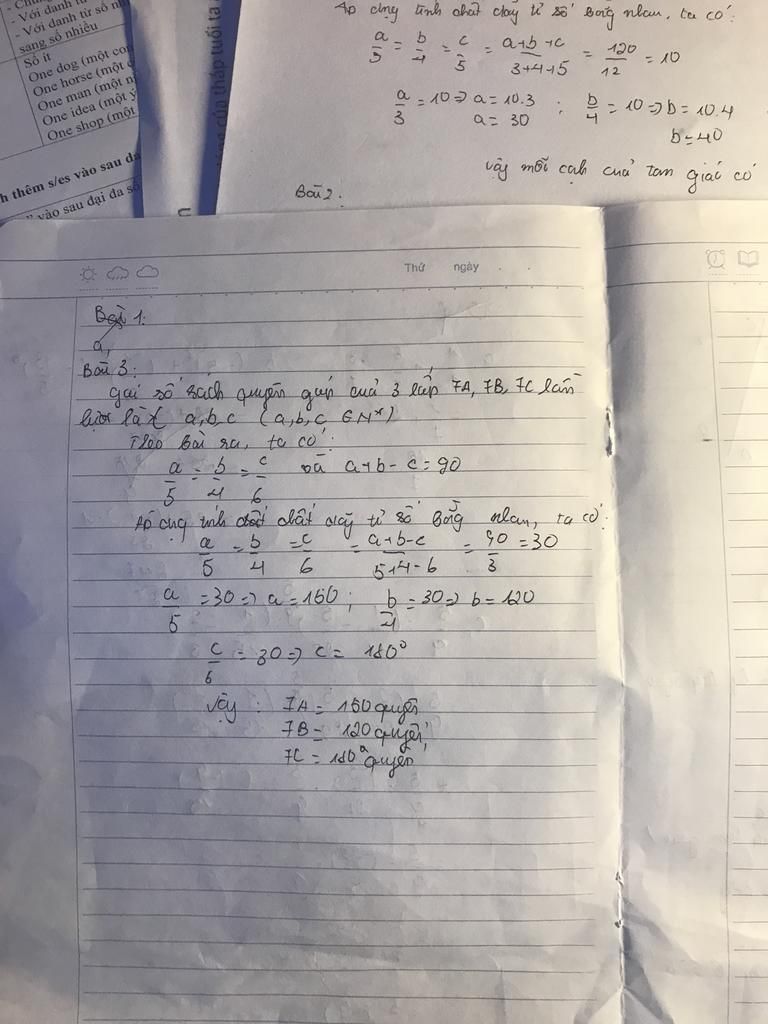 - Với danh từ
- Với danh từ số n
sang số nhiều
Số ít
One dog (một con
One horse (một
One man (một n
One idea (một ý
One shop (một
h thêm s/es vào sau da
vào sau đại đa số
của tháp tuổi ta
Áp dụng tính chất dãy tỉ số bằng nhau, ta có:
a/3 = b/4 = c/5 = a+b+c/3+4+5 = 120/12 = 10
a/3 = 10 => a = 10.3 ; b/4 = 10 => b = 10.4
a = 30
b = 40
Vậy mỗi cạh cuả tam giác có
Bài 2:
Thứ ngày
Bài 1:
a,
Bài 3:
Gọi số sách quyên góp cuả 3 lớp 7A, 7B, 7C lần
lượt là a, b, c (a, b, c ∈ N*)
Theo bài ra, ta có:
a/5 = b/4 = c/6 và a+b-c = 90
Áp dụng tính chất dãy tỉ số bằng nhau, ta có:
a/5 = b/4 = c/6 = a+b-c/5+4-6 = 90/3 = 30
a/5 = 30 => a = 150 ; b/4 = 30 => b = 120
c/6 = 30 => c = 180°
Vậy : 7A = 150 quyển
7B = 120 quyển
7C = 180 quyển